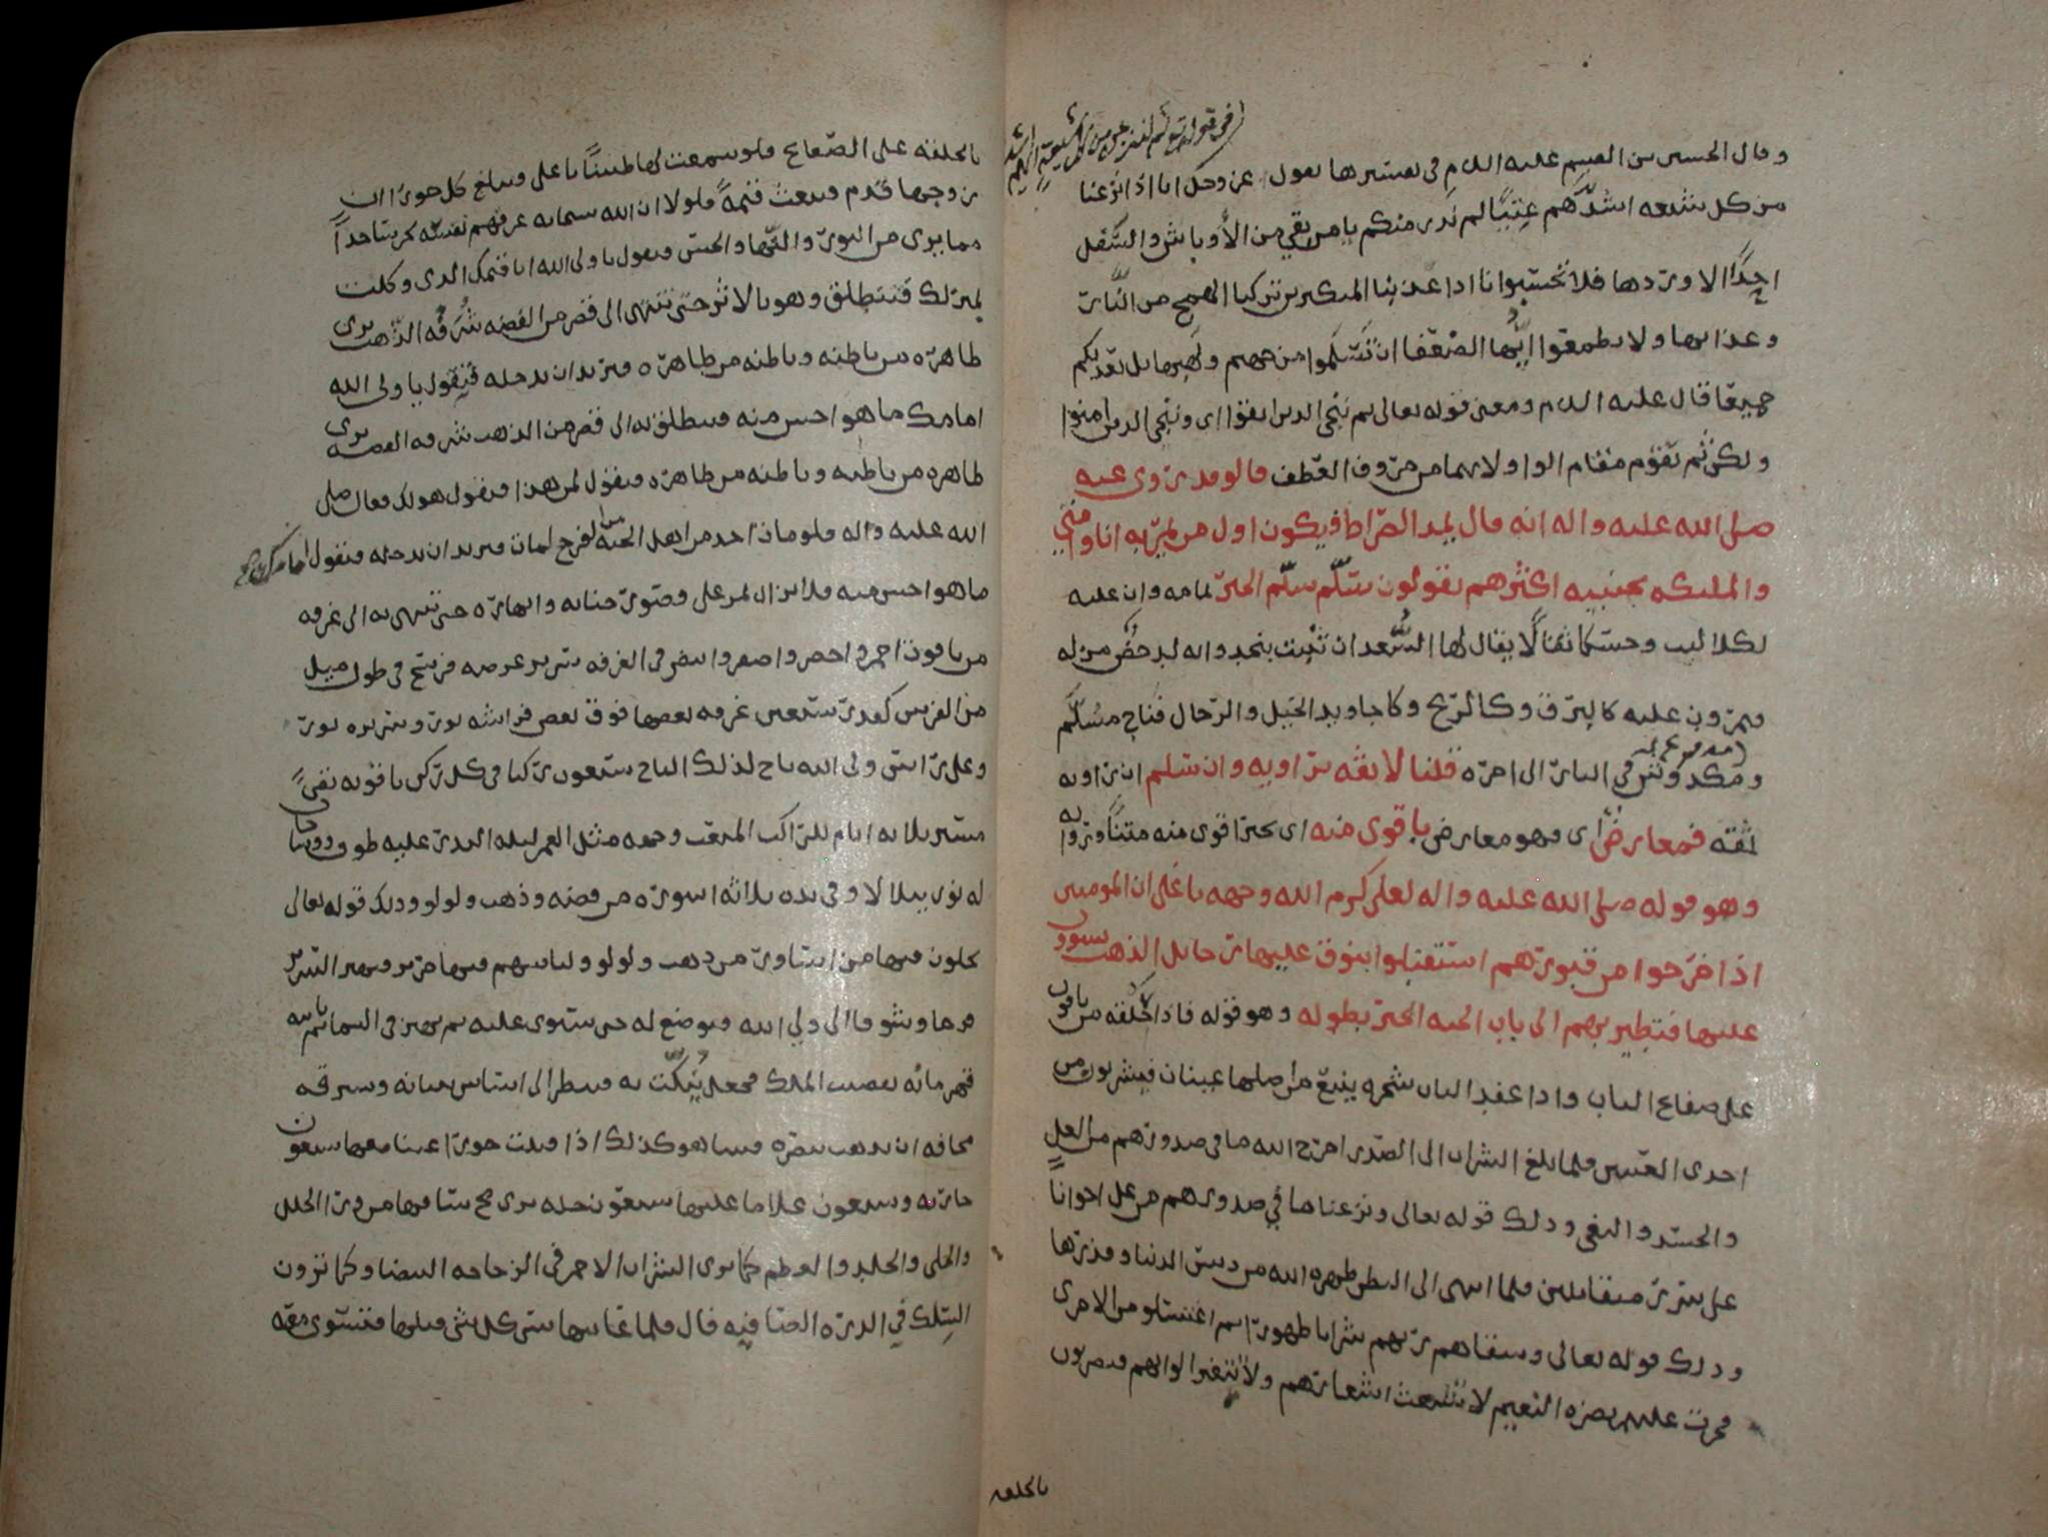 في قوله ثم لننزعن من كل شيعة ايهم اشد
وقال الحسين بن القسم عليه السلم في تفسيرها يقول عز وجل انا اذا نزعنا
من كل شيعه اشدهم عتيا لم ندر منكم يا من بقي من الأوباش والسفل
احدا الا وردها فلا تحسبوا انا اذا عذبنا المتكبرين تركنا الهمج من النار
وعذابها ولا تطمعوا ايها الضعفا ان تسلموا من جهنم ولهيبها بل نعذبكم
جميعا قال عليه السلم ومعنى قوله تعالى ثم ننجي الذين اتقوا اي وننجي الذين امنوا
ولكن ثم تقوم مقام الواو لانهما من حروف العطف قالوا قد روي عنه
صلى الله عليه واله انه قال يمد الصراط فيكون اول من يمر به انا وامتي
والمليكه بجنبيه اكثرهم يقولون سلم سلم الخبر تمامه وان عليه
لكلاليب وحسكا يقال لها السعدان تنبت بنجد وانه لدحض مزله
فيمرون عليه كالبرق وكالريح وكاجاويد الخيل والرجال فناج مسلم
ومكدوش في النار الى اخره قلنا لا ثقه براويه وان سلم ان راويه
ثقه فمعارض اي فهو معارض باقوى منه اي بخبر اقوى منه متنا ورواه
وهو قوله صلى الله عليه واله لعلي كرم الله وجهه يا علي ان المومنين
اذا خرجوا من قبورهم استقبلوا بنوق عليها رحايل الذهب يستوون
عليها فتطير بهم الى باب الجنه الخبر بطوله وهو قوله فاذا حلقه من ياقوت
على صفايح الباب واذا عند الباب شجره ينبع من اصلها عينان فيشربون من
احدى العينين فلما بلغ الشراب الى الصدر اخرج الله ما في صدورهم من الغل
والحسد والبغي وذلك قوله تعالى ونزعنا ما في صدورهم من غل اخوانا
على سرر متقابلين فلما انتهى الى البطن طهره الله من دنس الدنيا وقذرها
وذلك قوله تعالى وسقاهم ربهم شرابا طهورا ثم اغتسلوا من الاخرى
فجرت عليهم نضره النعيم لا تشعث اشعارهم ولا تتغير الوانهم فيضربون
بالحلقه
بالحلقه على الصفايح فلو سمعت لها طنينا يا علي ويبلغ كل حورا ان
زوجها قدم فتبعث قيمه فلولا ان الله سبحانه عرفهم نفسه لخر ساجدا
مما يرى من النور والبها والحسن فيقول يا ولي الله انا قيمك الذي وكلت
بمنزلك فينطلق وهو بالاثر حتى ينتهي الى قصر من الفضه شرفه الذهب يرى
ظاهره من باطنه وباطنه من ظاهره فيريد ان يدخله فيقول يا ولي الله
امامك ما هو احسن منه فينطلق به الى قصر من الذهب شرفه الفضه يرى
ظاهره من باطنه وباطنه من ظاهره فيقول لمن هذا فيقول هو لك فقال صلى
الله عليه واله فلو مات احد من اهل الجنه من الفرح لمات فيريد ان يدخله فيقول امامك
ما هو احسن منه فلا يزال يمر على قصور جنانه وانهاره حتى ينتهي به الى غرفه
من ياقوت احمر واخضر واصفر وابيض في الغرفه سرير عرضه فرسخ في طول ميل
من الفرش كقدر سبعين غرفه بعضها فوق بعض فراشه نور وسريره نور
وعلى راس ولي الله تاج لذلك التاج سبعون ركنا في كل ركن ياقوته تضي
مسير ثلاثه ايام للراكب المتعب ووجهه مثل القمر ليله البدر عليه طوق ووشاحان
له نور يتلالا وفي يده ثلاثه اسوره من فضه وذهب ولولو وذلك قوله تعالى
يحلون فيها من اساور من ذهب ولولو ولباسهم فيها حرير فيهتز السرير
فرحا وشوقا الى ولي الله فيوضع له حتى يستوى عليه ثم يهتز في السما
قهرمانه بقضيب الملك فجعل ينكت به فينظر الى اساس بنيانه وسرقه
مخافه ان يذهب ببصره فبينما هو كذلك اذ اقبلت حورا عينا معها سبعون
جاريه وسبعون غلاما عليها سبعون حله يرى مخ ساقها من ورا الحلل
والحلى والجلد والعظم كما يرى الشراب الاحمر في الزجاجه البيضا وكما ترون
السلك في الدره الصافيه قال فلما عاينها نسى كل شي قبلها فتستوي معه